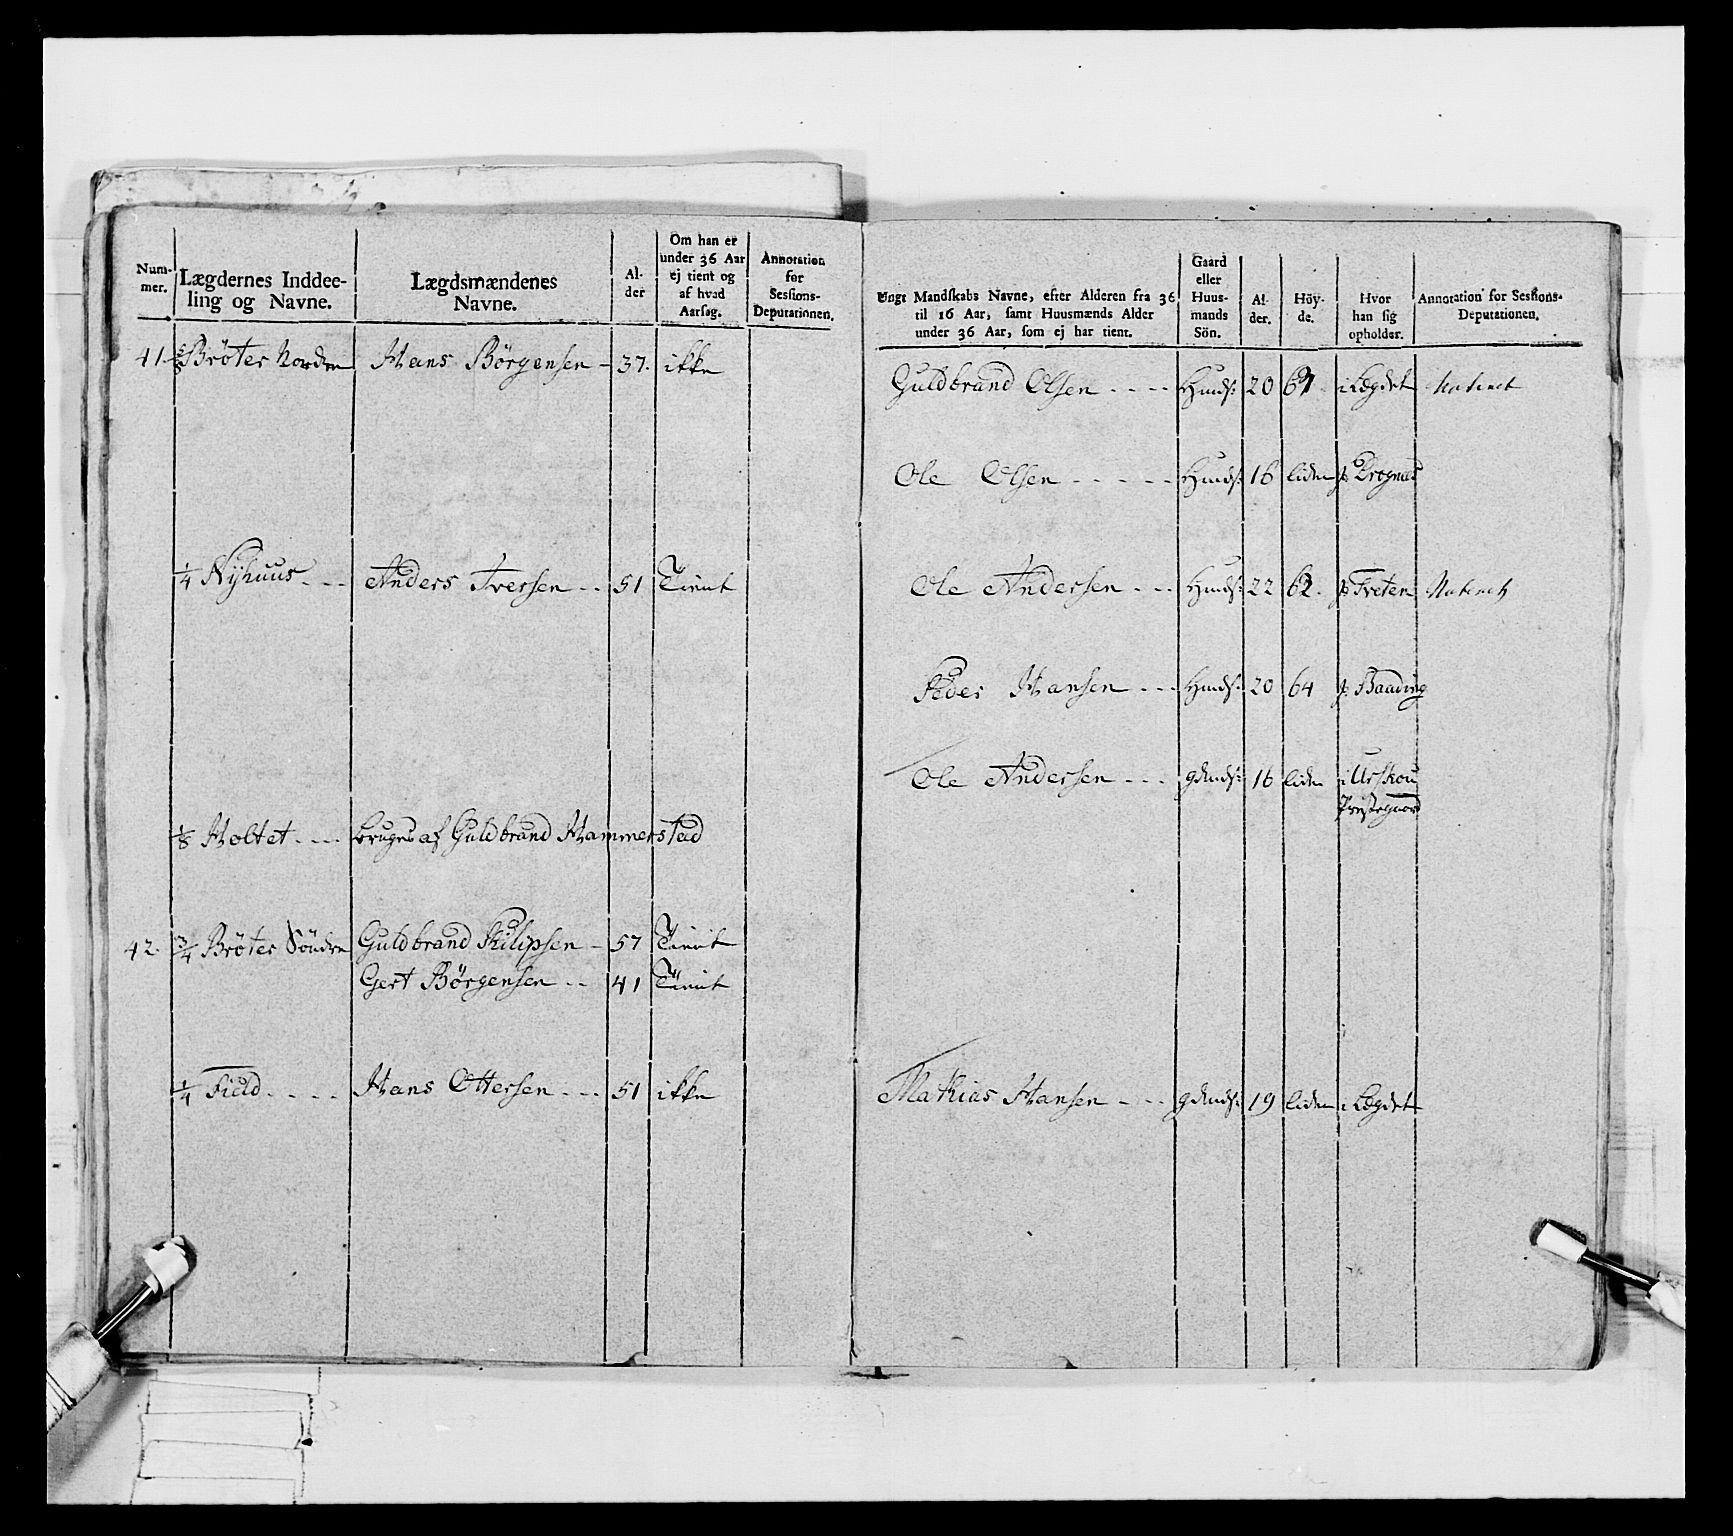 Num-
mer.
Lægdernes Inddee-
ling og Navne.
Lægdsmændenes
Navne.
Al-
der
Om han er
under 36 Aar
ej tient og
af hvad
Aarsag.
Annotation
for
Sessions-
Deputationen.
41. 5/8 Brøter Nordre Hans Børgensen - 37. ikke
1/4 Nÿhuus - - - Anders Iversen - - 51 Tient
1/8 Holtet - - - - bruges af Guldbrand Hammerstad
42. 3/4 Brøter Søndre Guldbrand Filipsen - 57 Tient
Gert Børgensen - - 41 Tient
1/4 Field - - - - Hans Ottersen - - - 51 ikke
Ungt Mandskabs Navne, efter Alderen fra 36
til 16 Aar, samt Huusmænds Alder
under 36 Aar, som ej har tient.
Gaard
eller
Huus-
mands
Sön.
Al-
der.
Höy-
de.
Hvor
han sig
opholder.
Annotation for Sessions-
Deputationen.
Guldbrand Olsen - - - - Hmds: 20 i Lægdet
Ole Olsen - - - - - Hmds: 16 liden
Ole Andersen - - - Hmds: 22 62. Treten
Peder Hansen - - - Hmds: 20 64 Baading
Ole Andersen - - - gdmds: 16 liden i Urskou
Præstegaard
Mathias Hansen - - - gdmds: 19 liden i Lægdet